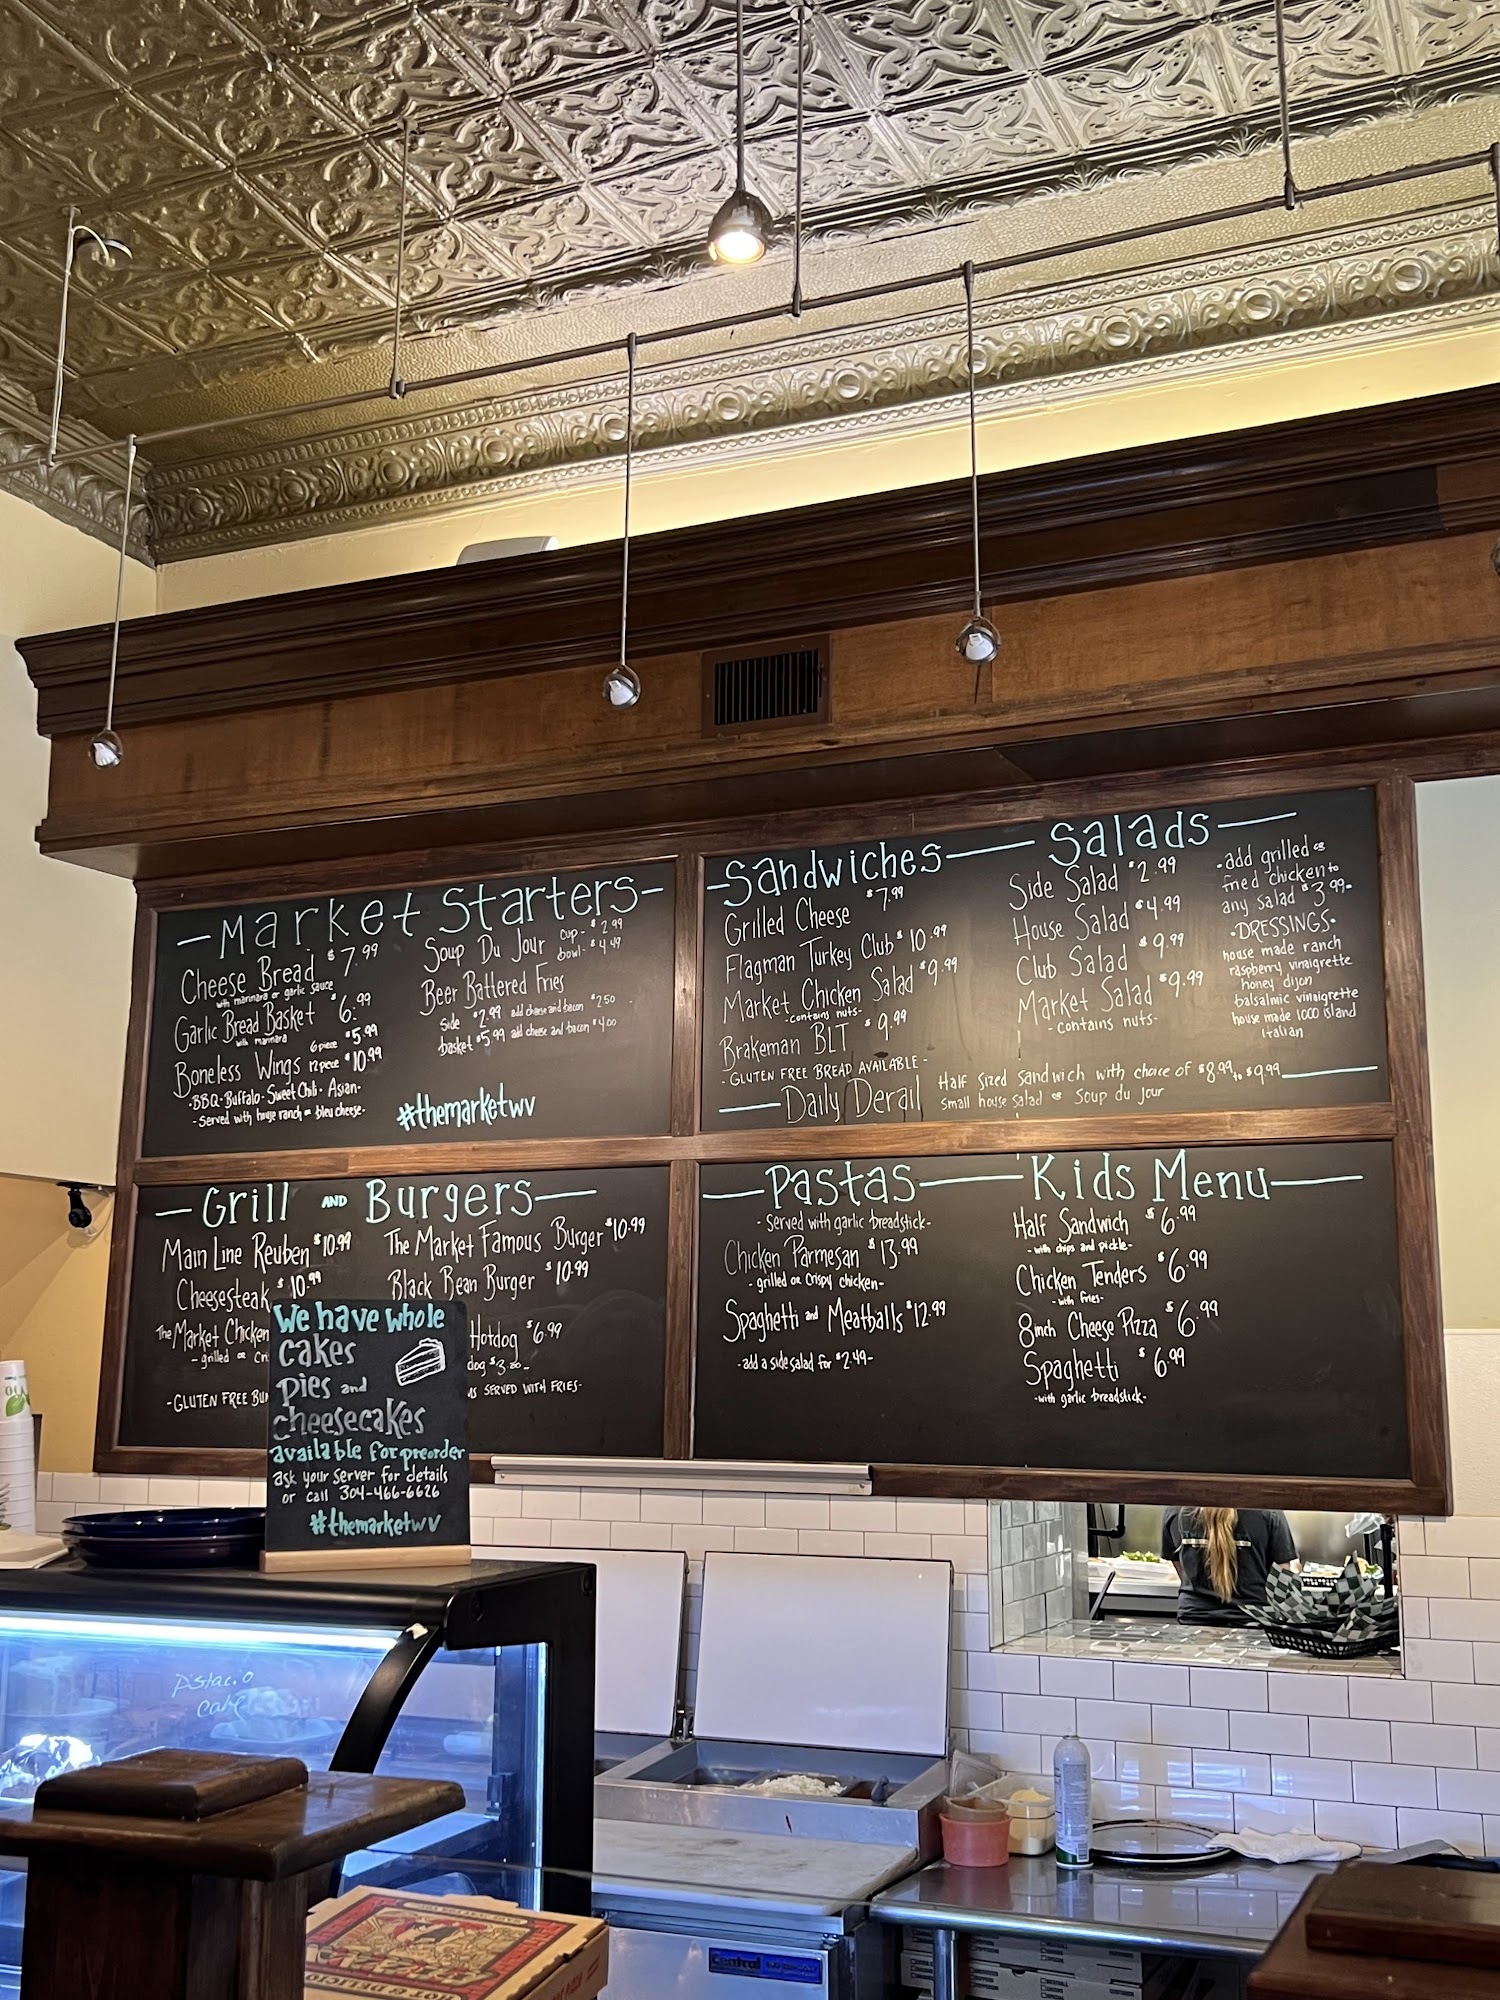 Market Starters
Cheese Bread $7.99
with marinara or garlic sauce
Garlic Bread Basket $6.99
with marinara
Boneless Wings 6 piece $5.99
12 piece $10.99
-BBQ-Buffalo-Sweet Chili-Asian-
-Served with house ranch or bleu cheese-
Soup Du Jour cup- $2.99
bowl- $4.49
Beer Battered Fries
side $2.99 add cheese and bacon $2.50
basket $5.99 add cheese and bacon $4.00
#themarketwv
Sandwiches
Grilled Cheese $7.99
Flagman Turkey Club $10.99
Market Chicken Salad $9.99
-contains nuts-
Brakeman BLT $9.99
-GLUTEN FREE BREAD AVAILABLE-
Salads
Side Salad $2.99
House Salad $4.99
Club Salad $9.99
Market Salad $9.99
-contains nuts-
-add grilled or
fried chicken to
any salad $3.99-
•DRESSINGS•
house made ranch
raspberry vinaigrette
honey dijon
balsalmic vinaigrette
house made 1000 island
Italian
Daily Derail Half sized sandwich with choice of $8.99 to $9.99
small house salad or soup du jour
Grill AND Burgers
Main Line Reuben $10.99
Cheesesteak $10.99
The Market Chicken
-grilled or
-GLUTEN FREE
The Market Famous Burger $10.99
Black Bean Burger $10.99
Hotdog $6.99
dog
SERVED WITH FRIES-
Pastas
-Served with garlic breadstick-
Chicken Parmesan $13.99
-grilled or crispy chicken-
Spaghetti and Meatballs $12.99
-add a side salad for $2.49-
Kids Menu
Half Sandwich $6.99
-with chips and pickle-
Chicken Tenders $6.99
-with fries-
8inch Cheese Pizza $6.99
Spaghetti $6.99
-with garlic breadstick-
We have whole
cakes
pies and
cheesecakes
available for preorder
ask your server for details
or call 304-466-6626
#themarketwv
Pistacio
cake
Central
HOT & DELICIOUS